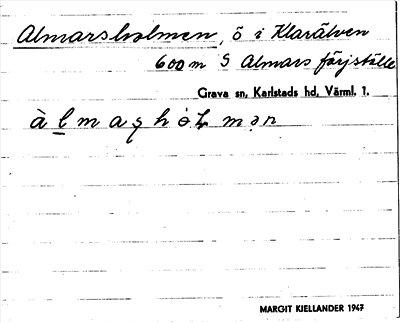 Almarsholmen, ö i Klarälven
600 m S Almars färjställe
Grava sn, Karlstads hd, Värml. 1.
MARGIT KIELLANDER 1947